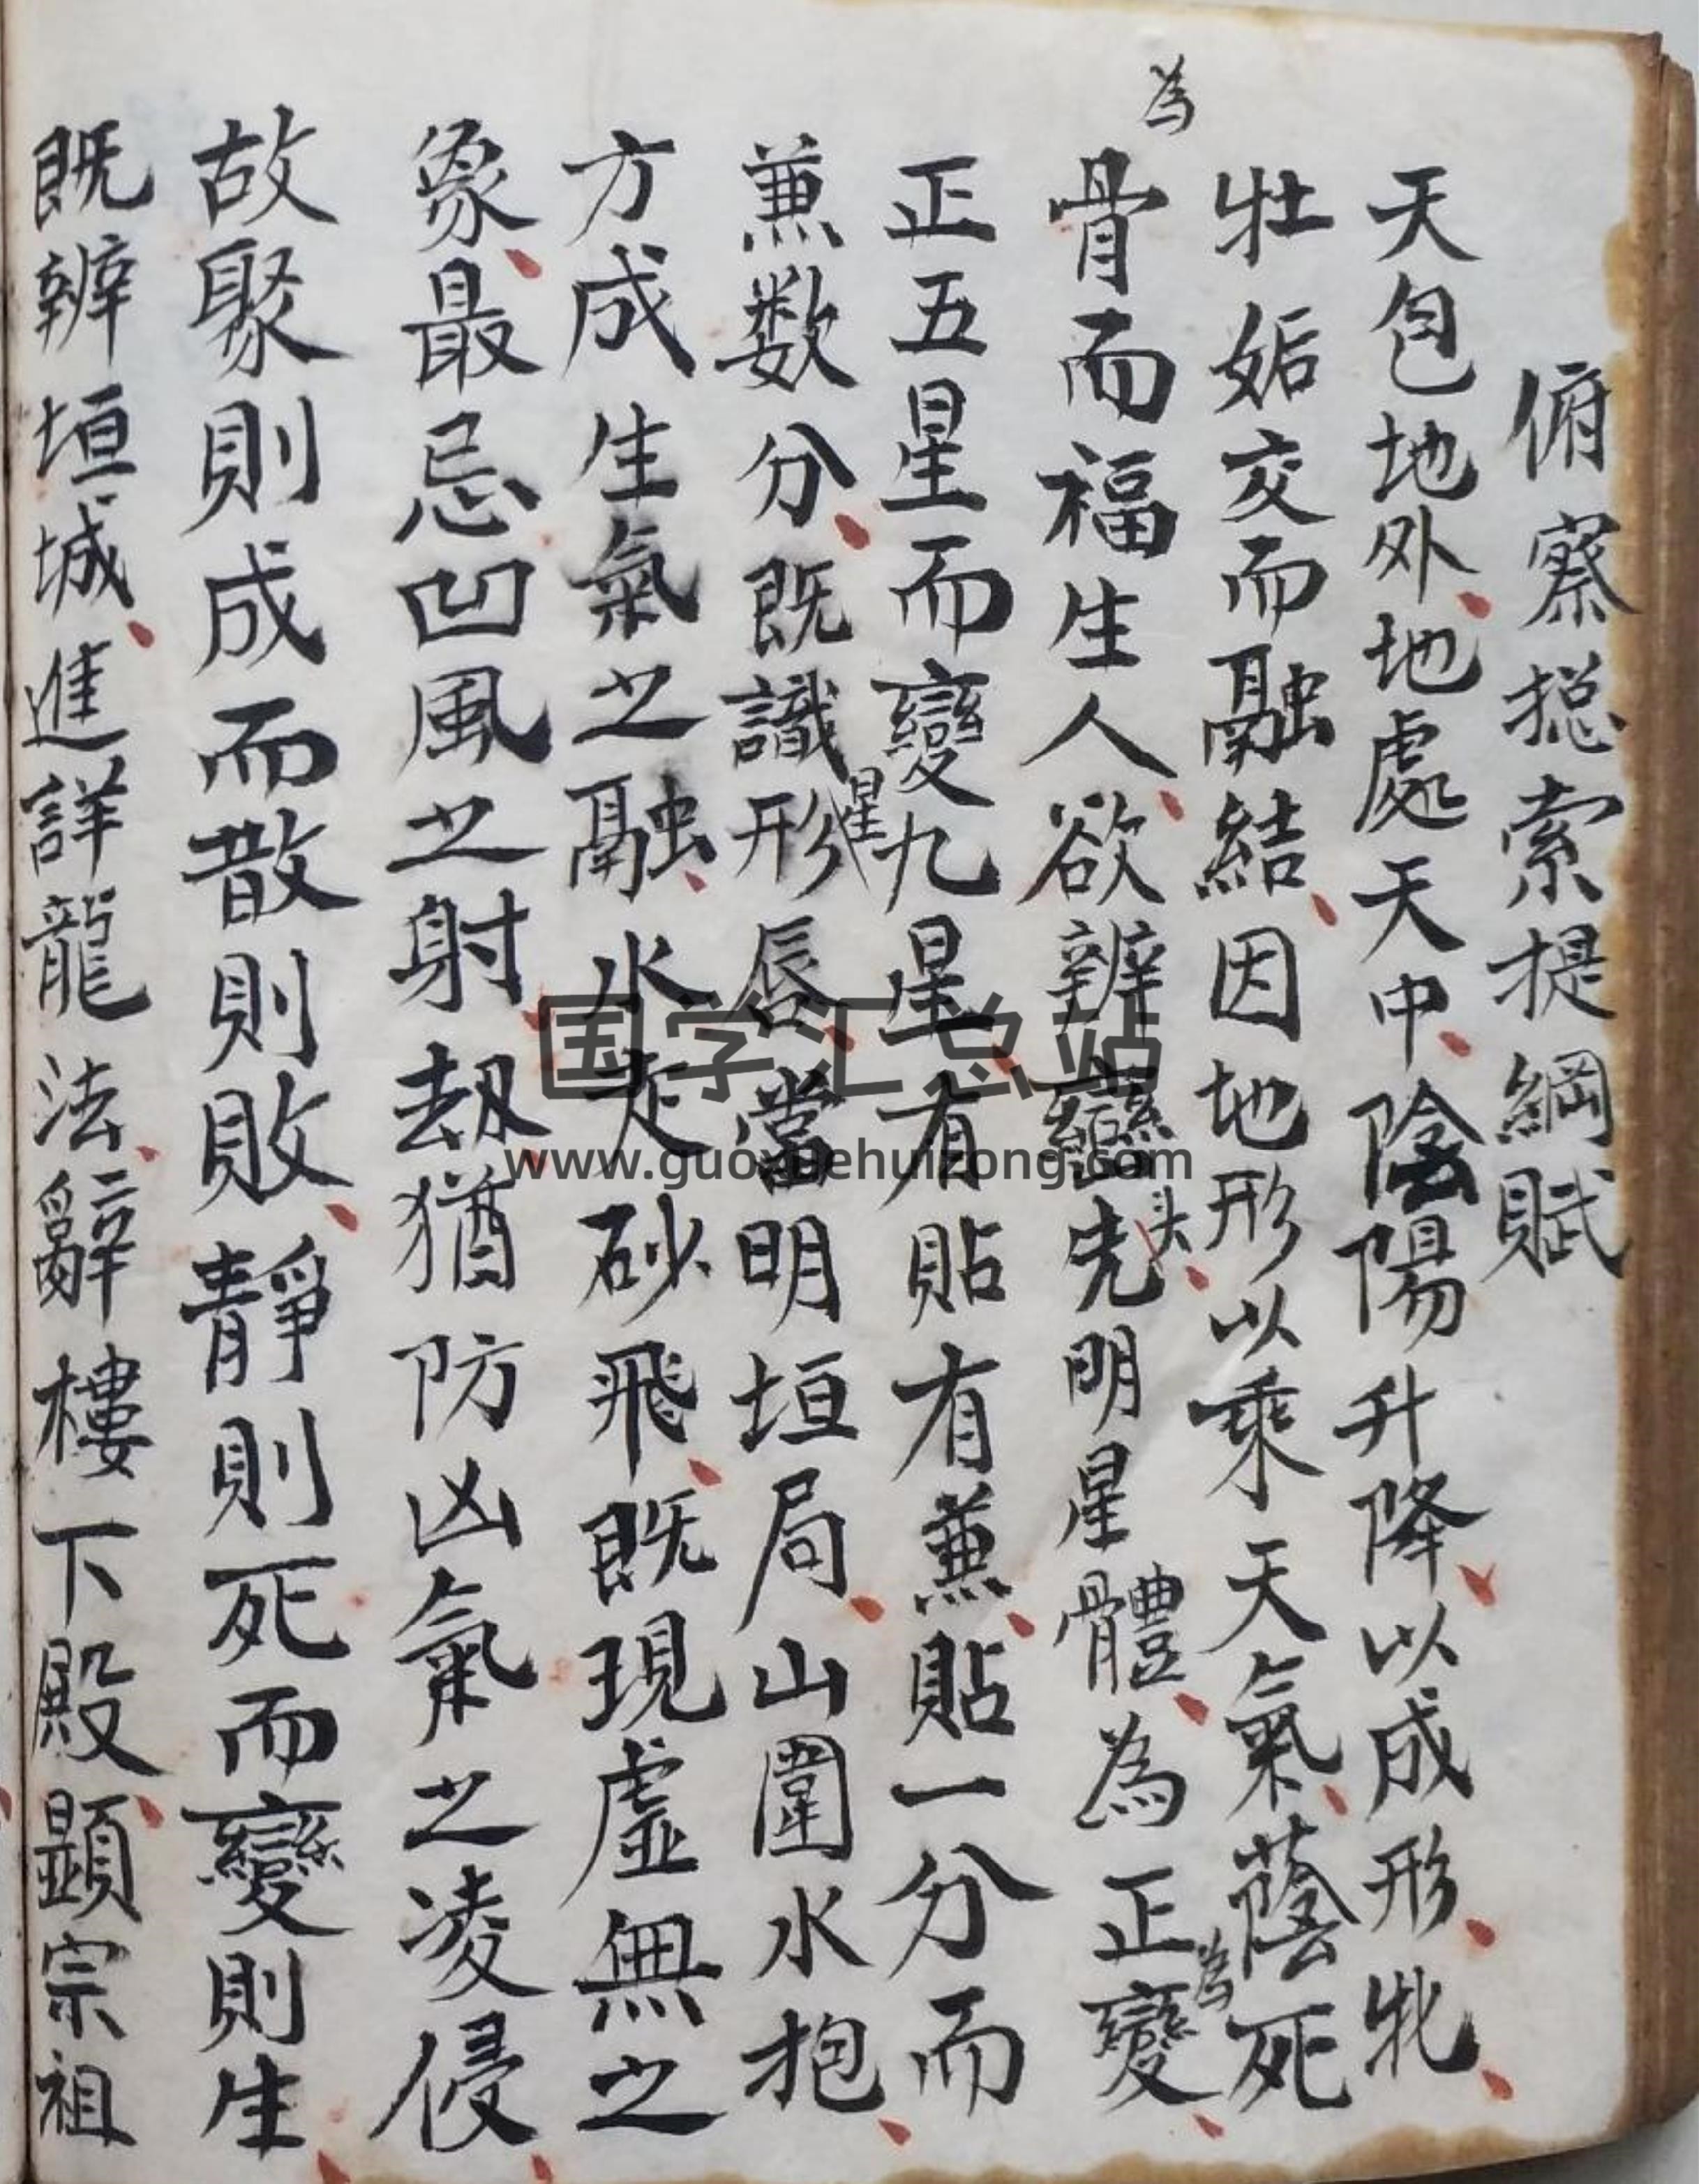 俯察搃索提綱賦
天包地外地處天中陰陽升降以成形牝
牡姤交而融結因地形以乘天氣蔭死
骨而福生人欲辨先明星體為正變
為
头
為
正五星而變九星有貼有兼貼一分而
兼数分既識形唇當明垣局山圍水抱
星
方成生氣之融水走砂飛既現虛無之
象最忌凹風之射劫猶防凶氣之凌侵
故聚則成而散則敗靜則死而變則生
既辨垣城進詳龍法辭樓下殿顕宗祖
国学汇总站
www.guoxuehuizong.com